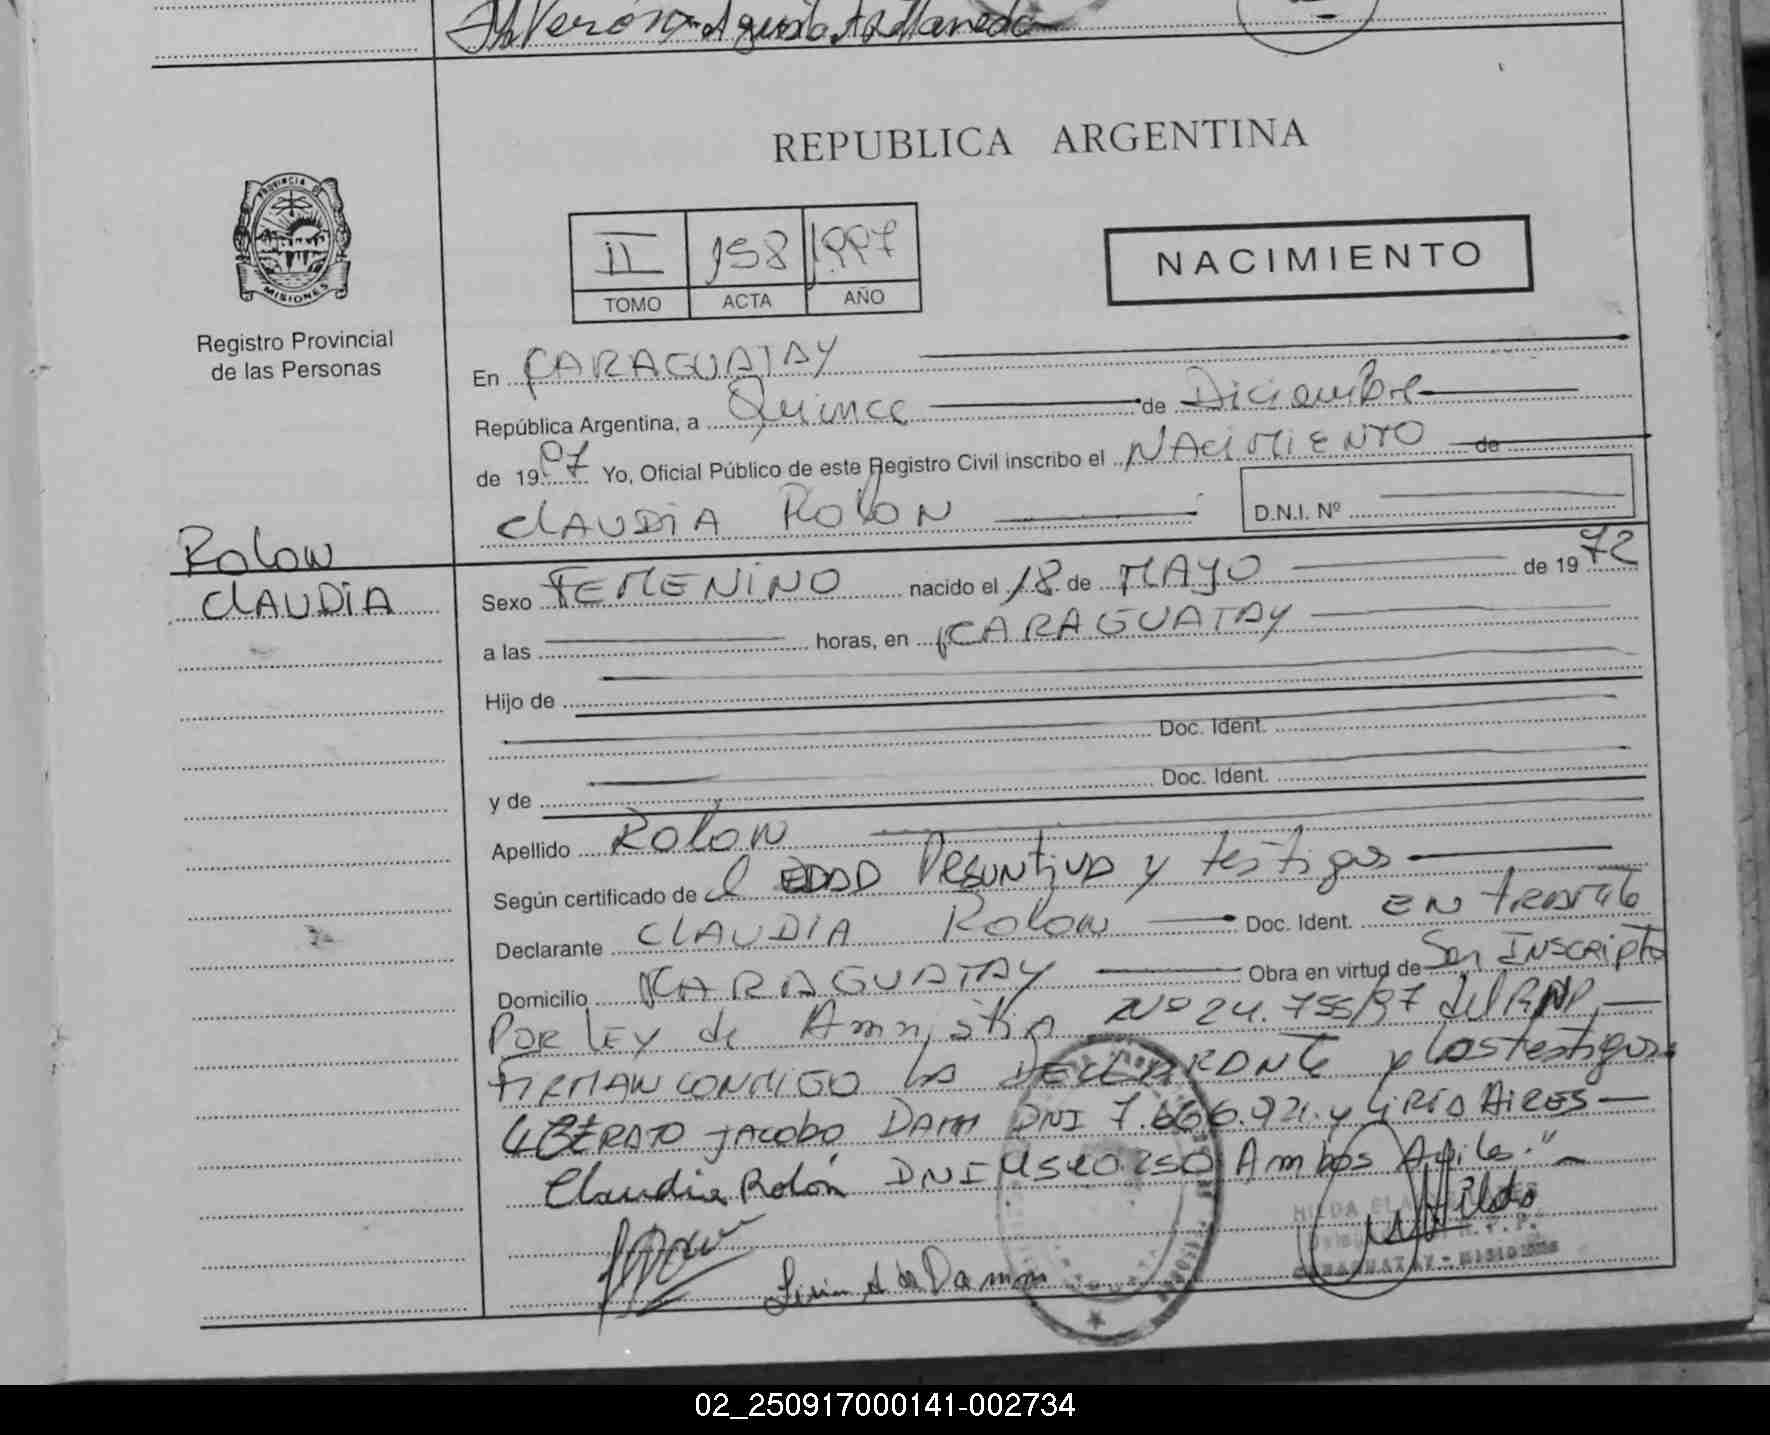 Verón Agueda Arellaneda
REPUBLICA ARGENTINA
PROVINCIA DE
MISIONES
II 158 1997
TOMO ACTA AÑO
NACIMIENTO
Registro Provincial
de las Personas
En CARAGUATAY
República Argentina, a Quince de Diciembre
de 1997 Yo, Oficial Público de este Registro Civil inscribo el NACIMIENTO de
CLAUDIA ROLON D.N.I. Nº
Rolon
CLAUDIA
Sexo FEMENINO nacido el 18 de MAYO de 1972
a las horas, en CARAGUATAY
Hijo de
Doc. Ident.
y de Doc. Ident.
Apellido Rolon
Según certificado de EDAD Presuntiva y testigos
Declarante CLAUDIA Rolon Doc. Ident. EN tramite
Domicilio CARAGUATAY Obra en virtud de Ser INSCRIPTA
POR LEY de Amnistia Nº 24.755/97 del RNP,
FIRMAN CONMIGO LA DECLARANTE y los testigos:
LIBERATO JACOBO DAMM DNI 7.666.921 y LIRIA AIRES
Claudia Rolón DNI 4.510.250 Ambos Agiles."
HILDA
CARAGUATAY - MISIONES
Liria A de Damm
02_250917000141-002734